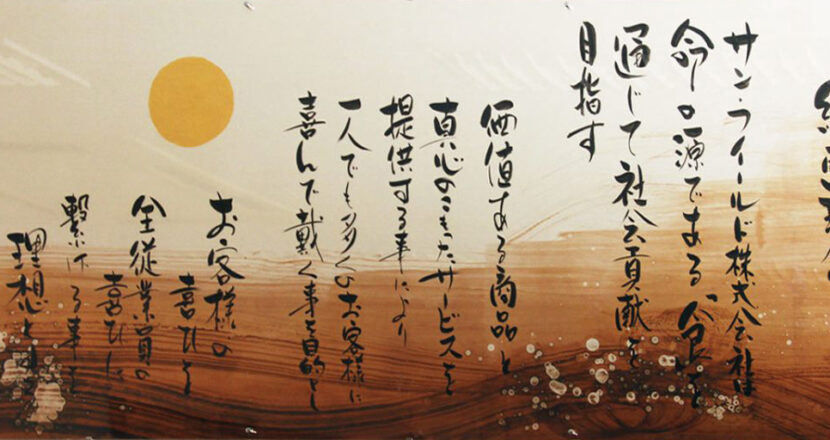 サンフィールド株式会社は
命の源である「食」を
通じて社会貢献を
目指す
価値ある商品と
真心のこもったサービスを
提供する事により
一人でも多くのお客様に
喜んで戴く事を目的とし
お客様の
喜びを
全従業員の
喜びに
繋げる事を
理想と